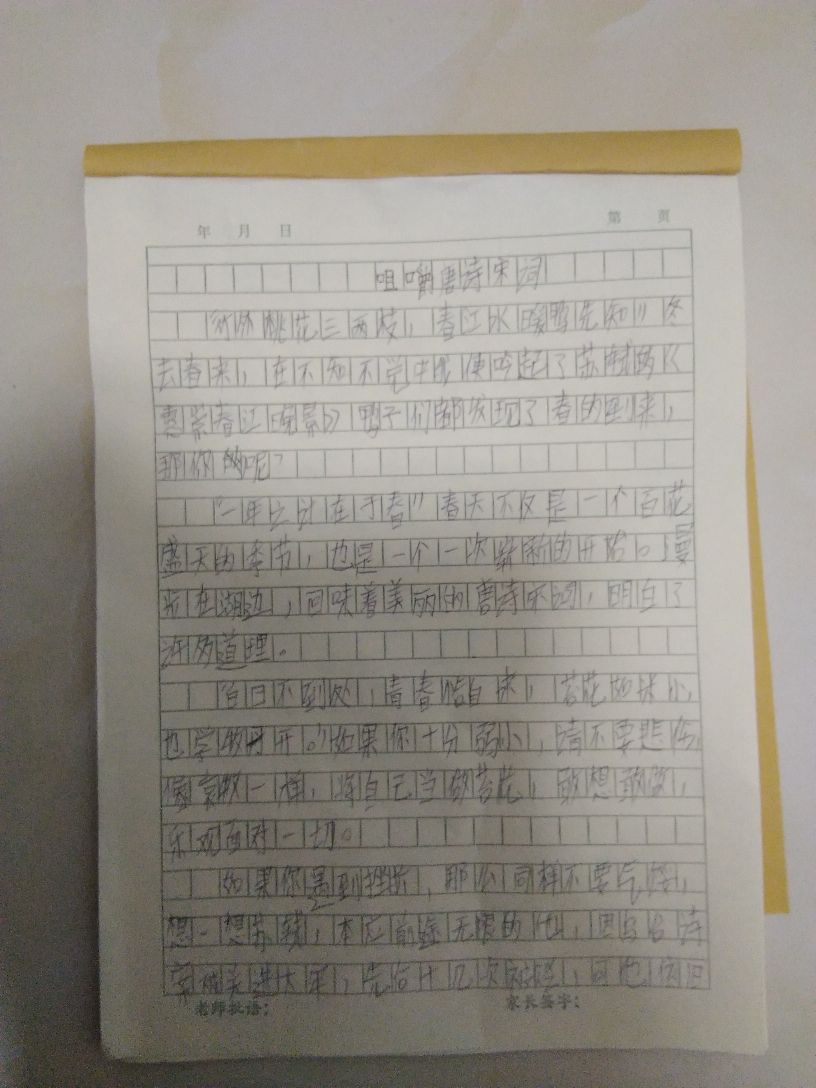 年 月 日
第 页
咀嚼唐诗宋词
竹外桃花三两枝，春江水暖鸭先知"冬
去春来，在不知不觉中我便吟起了苏轼的《
惠崇春江晚景》鸭子们都发现了春的到来，
那你呢？
"一年之计在于春"春天不仅是一个百花
盛天的季节，也是一个一次崭新的开始。漫
步在湖边，回味着美丽的唐诗宋词，明白了
许多道理。
白日不到处，青春恰自来，苔花如米小，
也学牡丹开。"如果你十分弱小，请不要悲伤，
像袁枚一样，将自己当做苔花，敢想敢做，
乐观面对一切。
如果你遇到挫折，那么同样不要气馁，
想一想苏轼，本应前途无限的他，因乌台诗
案被关进大牢，先后十几次被贬，可他依旧
老师批语：
家长签字：